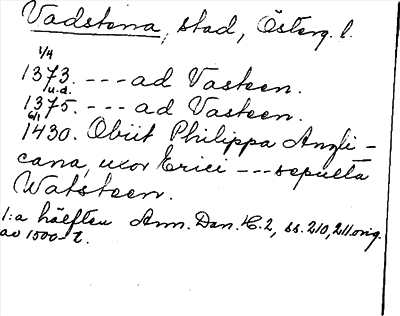 Vadstena, stad, Österg. l.
1/4
1373. --- ad Vasteen.
u.d.
1375. --- ad Vasteen.
6/1
1430. Obiit Philippa Angli-
cana, uxor Erici --- sepulta
Watsteen.
1:a hälften Ann. Dan. H. 2, ss. 210, 211 orig.
av 1500-t.